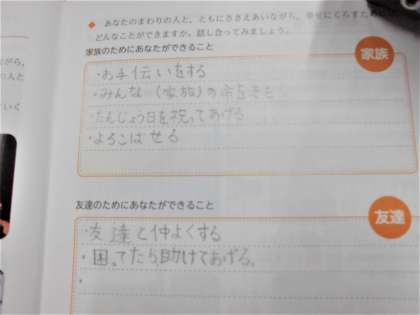 ◆ あなたのまわりの人と、ともにささえあいながら、幸せにくらすため
どんなことができますか。話し合ってみましょう。
家族のためにあなたができること
家族
・お手伝いをする
・みんな(家族)の
・たんじょう日を祝ってあげる
・よろこばせる
友達のためにあなたができること
友達
・友達と仲よくする
・困ってたら助けてあげる。
・